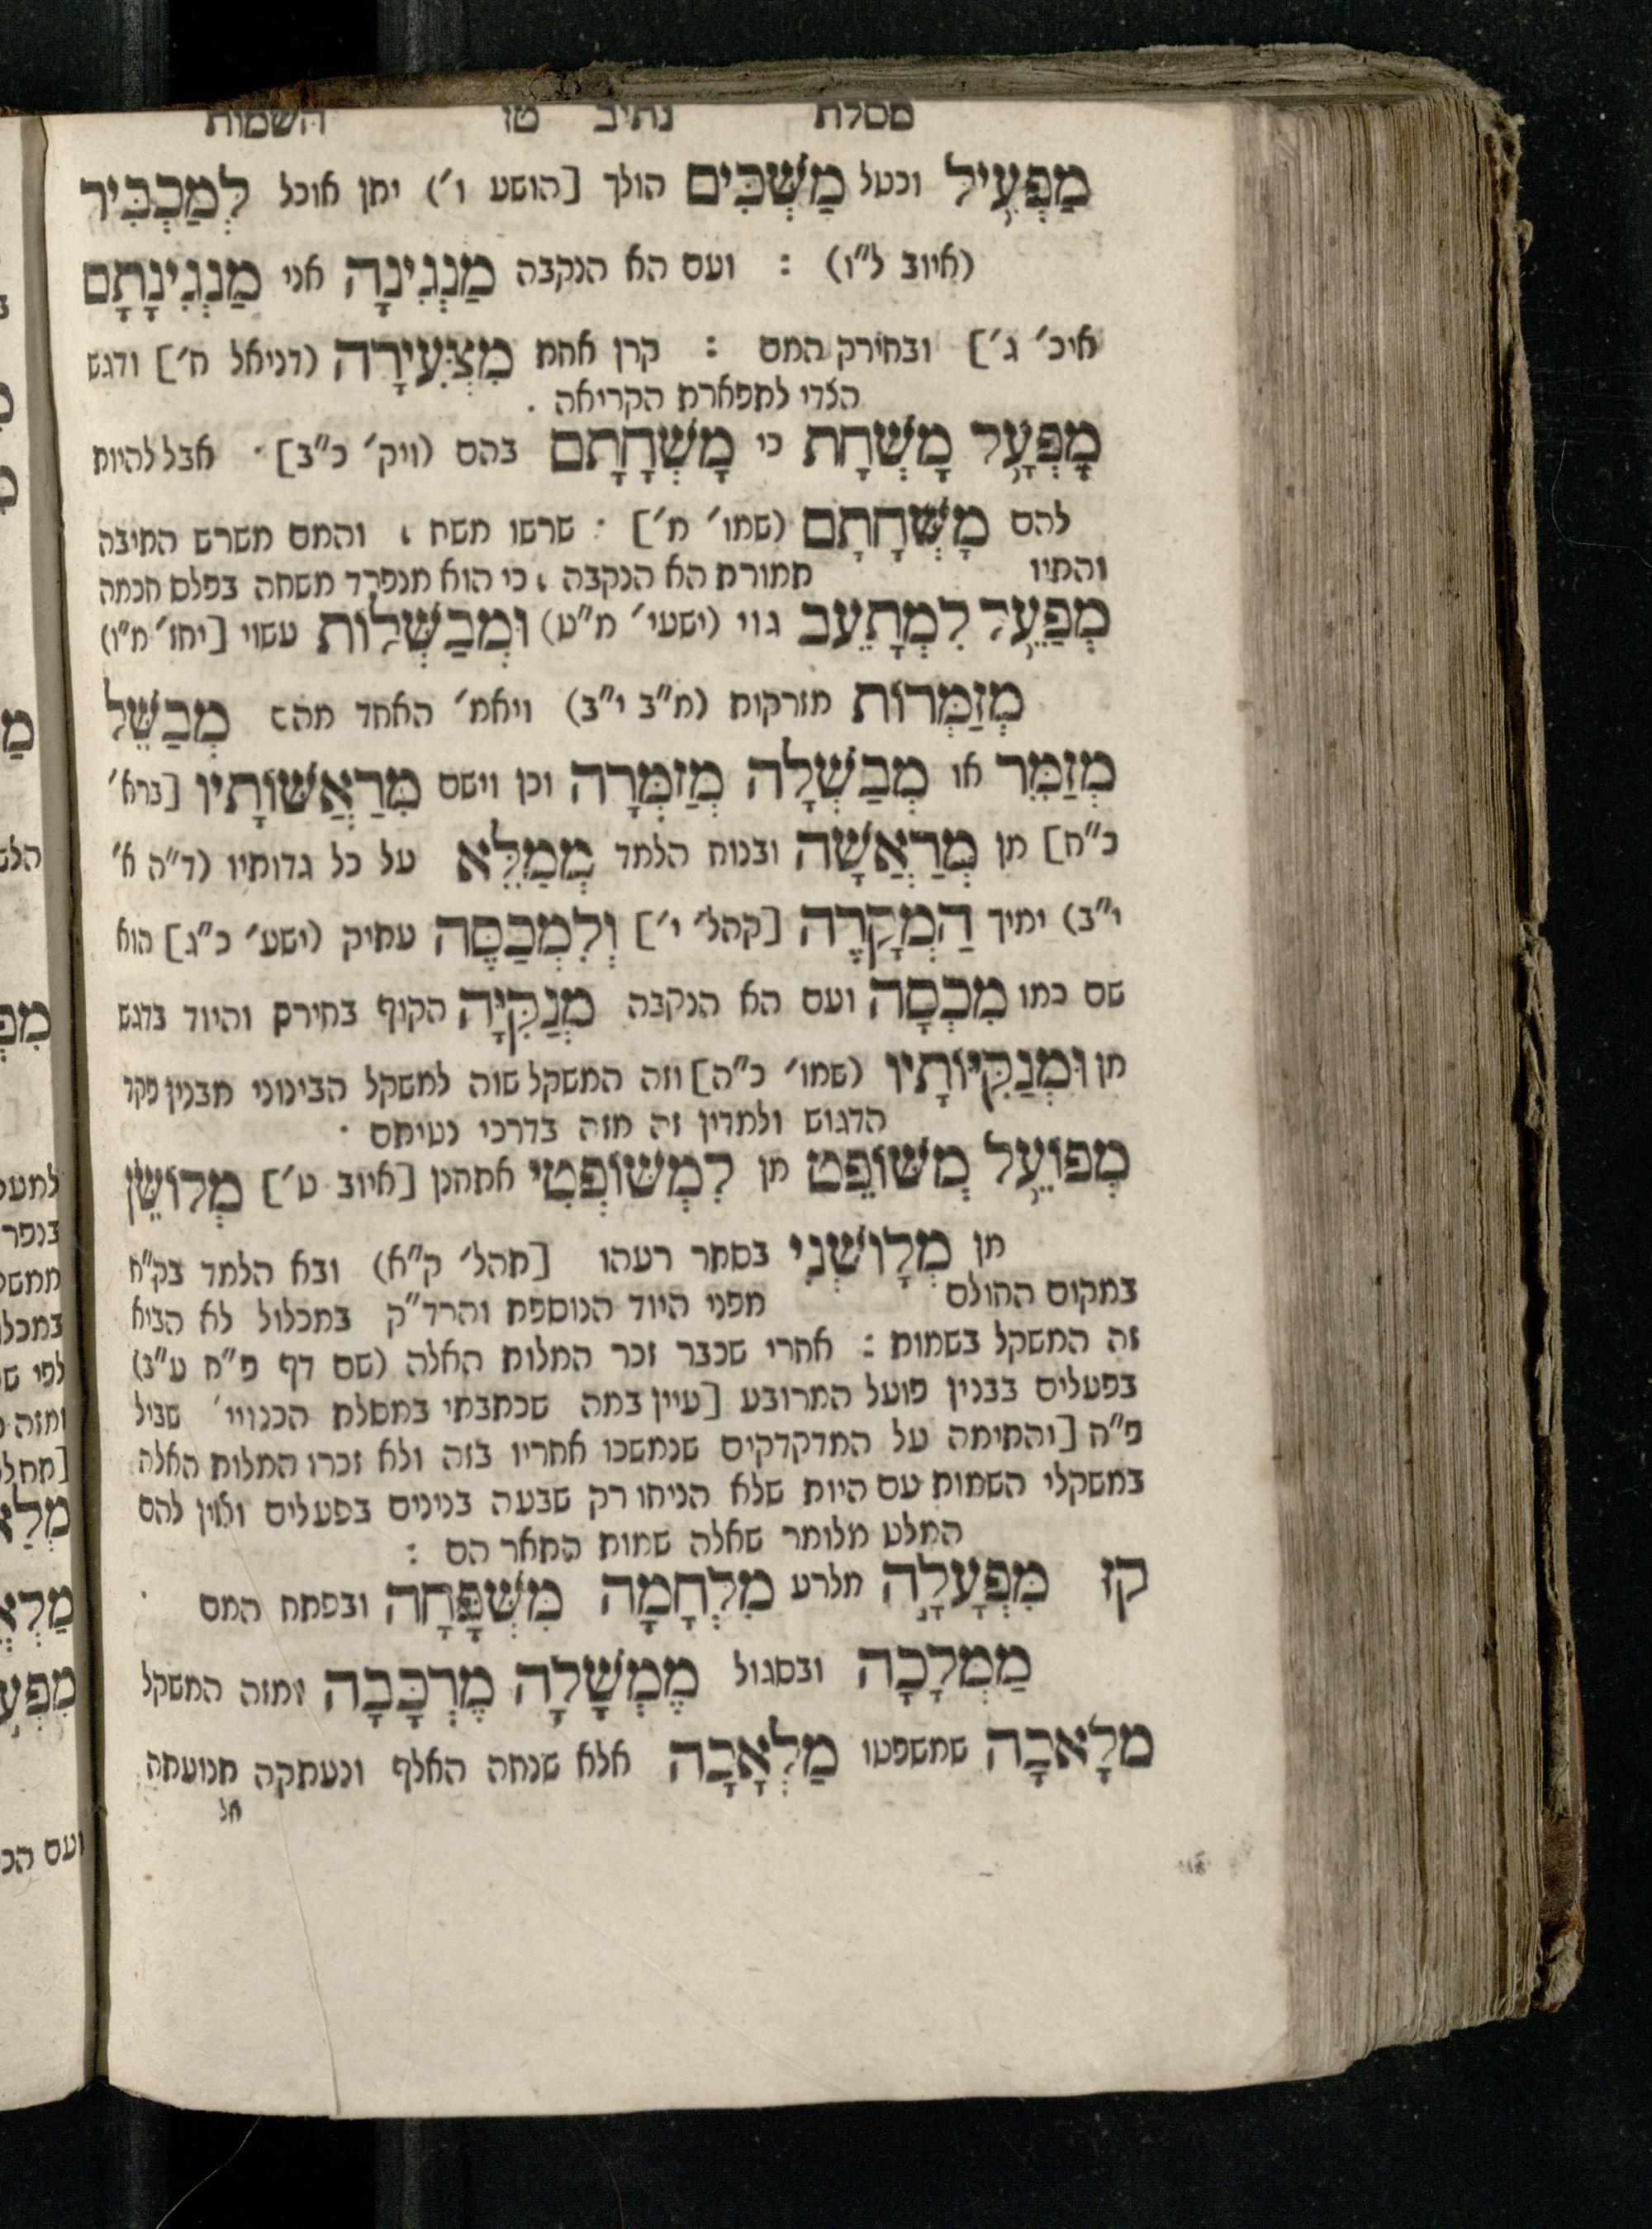 מסלת נתיב טז השמות
מַפְעִיל וכטל מַשְׁכִּים הולך [הושע ו׳) יתן אוכל לְמַכְבִּיר
(איוב ל״ו) : ועם הא הנקבה מַנְגִינָה אני מַנְגִינָתָם
איכ׳ ג׳] ובחירק המם : קרן אחת מִצְּעִירָה (דניאל ח׳] ודגש
הצדי לתפארת הקריאה .
מָפְעָל מָשְׁחָת כי מָשְׁחָתָם בהם (ויק׳ כ״ב] · אבל להיות
להם מָשְׁחָתָם (שמו׳ מ׳] · שרשו משח , והמם משרש התיבה
והתיו תמורת הא הנקבה , כי הוא מנפרד משחה בפלס חכמה
מְפַעֵל לִמְתָעֵב גוי (ישעי׳ מ״ט) וּמְבַשְּׁלוֹת עשוי [יחז׳ מ״ו)
מְזַמְּרוֹת מזרקות (מ״ב י״ב) ויאמ׳ האחד מהם מְבַשֵּׁל
מְזַמֵּר או מְבַשְּׁלָה מְזַמְּרָה וכן וישם מְרַאֲשׁוֹתָיו [ברא׳
כ״ח] מן מְרַאֲשָׁה ובנוח הלמד מְמַלֵּא על כל גדותיו (ד״ה א׳
י״ב) ימיך הַמְקָרֶה [קהל׳ י׳] וְלִמְכַסֶּה עתיק (ישע׳ כ״ג] הוא
שם כמו מִכְסָה ועם הא הנקבה מְנַקִּיָּה הקוף בחירק והיוד בדגש
מן וּמְנַקִּיּוֹתָיו (שמו׳ כ״ה] וזה המשקל שוה למשקל הבינוני מבנין פקד
הדגוש ולמדין זה מזה בדרכי נטיתם ·
מְפוֹעֵל מְשׁוֹפֵט מן לִמְשׁוֹפְטִי אתחנן [איוב ט׳] מְלוֹשֵׁן
מן מְלָושְׁנִי בסתר רעהו [תהל׳ ק״א) ובא הלמד בק״ח
במקום החולם מפני היוד הנוספת והרד״ק במכלול לא הביא
זה המשקל בשמות : אחרי שכבר זכר המלות האלה (שם דף פ״ח ע״ב)
בפעלים בבנין פועל המרובע [עיין במה שכתבתי במסלת הכנויי׳ שביל
פ״ה [והתימה על המדקדקים שנמשכו אחריו בזה ולא זכרו המלות האלה
במשקלי השמות עם היות שלא הניחו רק שבעה בנינים בפעלים ואין להם
המלט מלומר שאלה שמות התאר הם :
קז מִפְעָלָה מלרע מִלְחָמָה מִשְׁפָּחָה ובפתח המם ·
מַמְלָכָה ובסגול מֶמְשָׁלָה מֶרְכָּבָה ומזה המשקל
מלָאכָה שמשפטו מַלְאָכָה אלא שנחה האלף ונעתקה תנועתה
אל